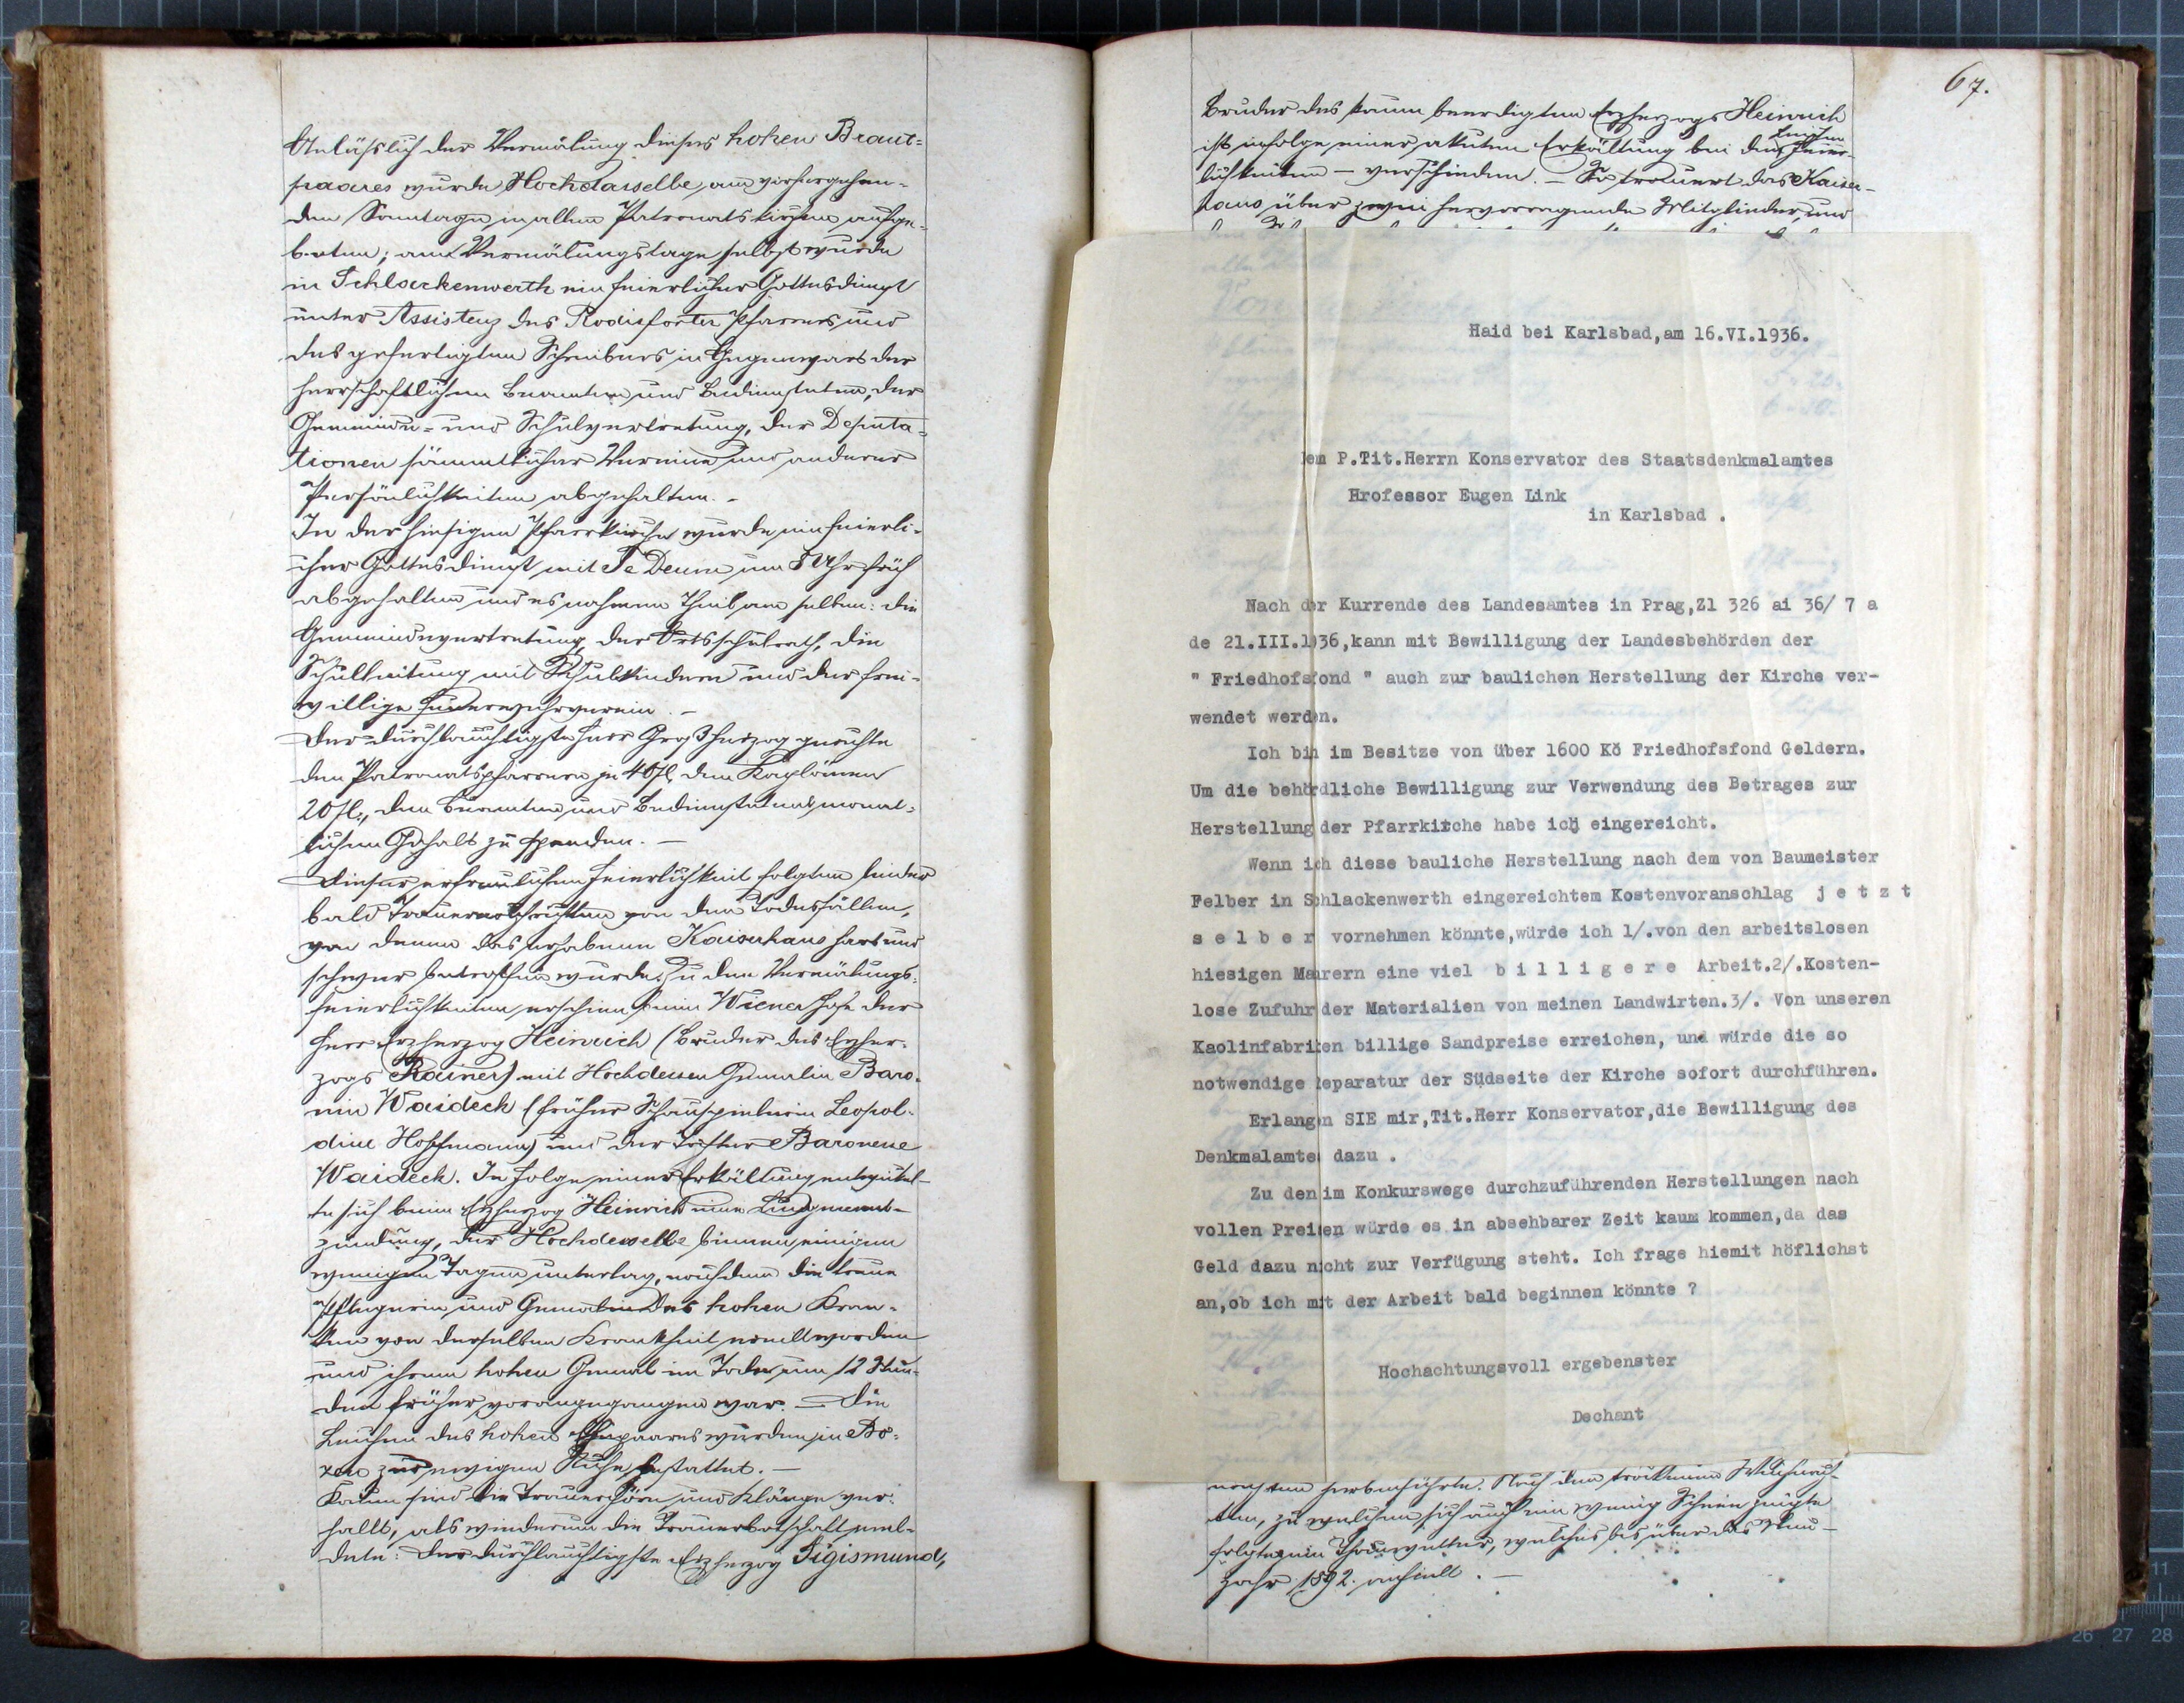 Anläßlich der Vermälung dieses hohen Braut=
paares wurde Hochdasselbe am vorhergehen=
den Sonntage in allen Patronatskirchen aufge=
boten; am Vermälungstage selbst wurde
in Schlackenwerth ein feierlicher Gottesdienst
unter Assistenz des Rodisforter Pfarrers und
des gefertigten Schreibers in Gegenwart der
herrschaftlichen Beamten und Bediensteten, der
Gemeinde= und Schulvertretung, der Deputa=
tionen sämmtlicher Vereine und anderer
Persönlichkeiten abgehalten. –
In der hiesigen Pfarrkirche wurde ein feierli=
cher Gottesdienst mit Te Deum um 8 Uhr früh
abgehalten und es nahmen Theil am selben: die
Gemeindevertretung, der Ortsschulrath, die
Schulleitung mit Schulkindern und der frei=
willige Feuerwehrverein. –
Der durchlauchtigste Herr Großherzog geruhte
den Patronatspfarrern je 40 fl, den Kaplänen
20 fl., den Beamten und Bediensteten monat=
lichen Gehalt zu spenden. –
Dieser erfreulichen Feierlichkeit folgten leider
bald Trauernachrichten von den Todesfällen,
von denen das erhabene Kaiserhaus hart und
schwer betroffen wurde. Zu den Vermälungs=
feierlichkeiten erschien beim Wiener Hofe der
Herr Erzherzog Heinrich (Bruder des Erzher=
zogs Rainer) mit Hochdessen Gemalin Baro=
nin Waideck (früher Schauspielerin Leopol=
dine Hoffmann) und der Tochter Baronesse
Waideck. In Folge einer Erkältung entwickel=
te sich beim Erzherzog Heinrich eine Lungenent=
zündung, der Hochdesselbe binnen einigen
wenigen Tagen unterlag, nachdem die treue
Pflegerin und Gemalin des hohen Kran=
ken von derselben Krankheit ereilt worden
und ihrem hohen Gemal im Tode um 12 Stun=
den früher vorangegangen war. – Die
Leichen des hohen Ehepaares wurden in Bo=
zen zur ewigen Ruhe bestattet. –
Kaum sind die Trauerchöre und Klänge ver=
hallt, als wiederum die Trauerbotschaft mel=
dete: Der durchlauchtigste Erzherzog Sigismund,
67.
Bruder des kaum beerdigten Erzherzogs Heinrich
ist infolge einer akuten Erkältung bei den Leichen
feier=
lichkeiten – verschieden. – So trauert das Kaiser=
haus über zwei hervorragende Mitglieder, und
Haid bei Karlsbad,am 16.VI.1936.
Dem P.Tit.Herrn Konservator des Staatsdenkmalamtes
Hrofessor Eugen Link
in Karlsbad .
Nach der Kurrende des Landesamtes in Prag,Zl 326 ai 36/ 7 a
de 21.III.1936,kann mit Bewilligung der Landesbehörden der
" Friedhofsfond " auch zur baulichen Herstellung der Kirche ver-
wendet werden.
Ich bin im Besitze von über 1600 Kč Friedhofsfond Geldern.
Um die behördliche Bewilligung zur Verwendung des Betrages zur
Herstellung der Pfarrkirche habe ich eingereicht.
Wenn ich diese bauliche Herstellung nach dem von Baumeister
Felber in Schlackenwerth eingereichtem Kostenvoranschlag j e t z t
s e l b e r vornehmen könnte,würde ich 1/.von den arbeitslosen
hiesigen Maurern eine viel b i l l i g e r e Arbeit.2/.Kosten-
lose Zufuhr der Materialien von meinen Landwirten.3/. Von unseren
Kaolinfabriken billige Sandpreise erreichen, und würde die so
notwendige Reparatur der Südseite der Kirche sofort durchführen.
Erlangen SIE mir,Tit.Herr Konservator,die Bewilligung des
Denkmalamtes dazu .
Zu den im Konkurswege durchzuführenden Herstellungen nach
vollen Preisen würde es in absehbarer Zeit kaum kommen,da das
Geld dazu nicht zur Verfügung steht. Ich frage hiemit höflichst
an,ob ich mit der Arbeit bald beginnen könnte ?
Hochachtungsvoll ergebenster
Dechant
herbeiführte. Nach dem trockenen Weihnach=
ten, zu welchem sich auch ein wenig Schnee zeigte
folgte ein Thauwetter, welches bis über das Neu=
jahr 1892. anhielt. –